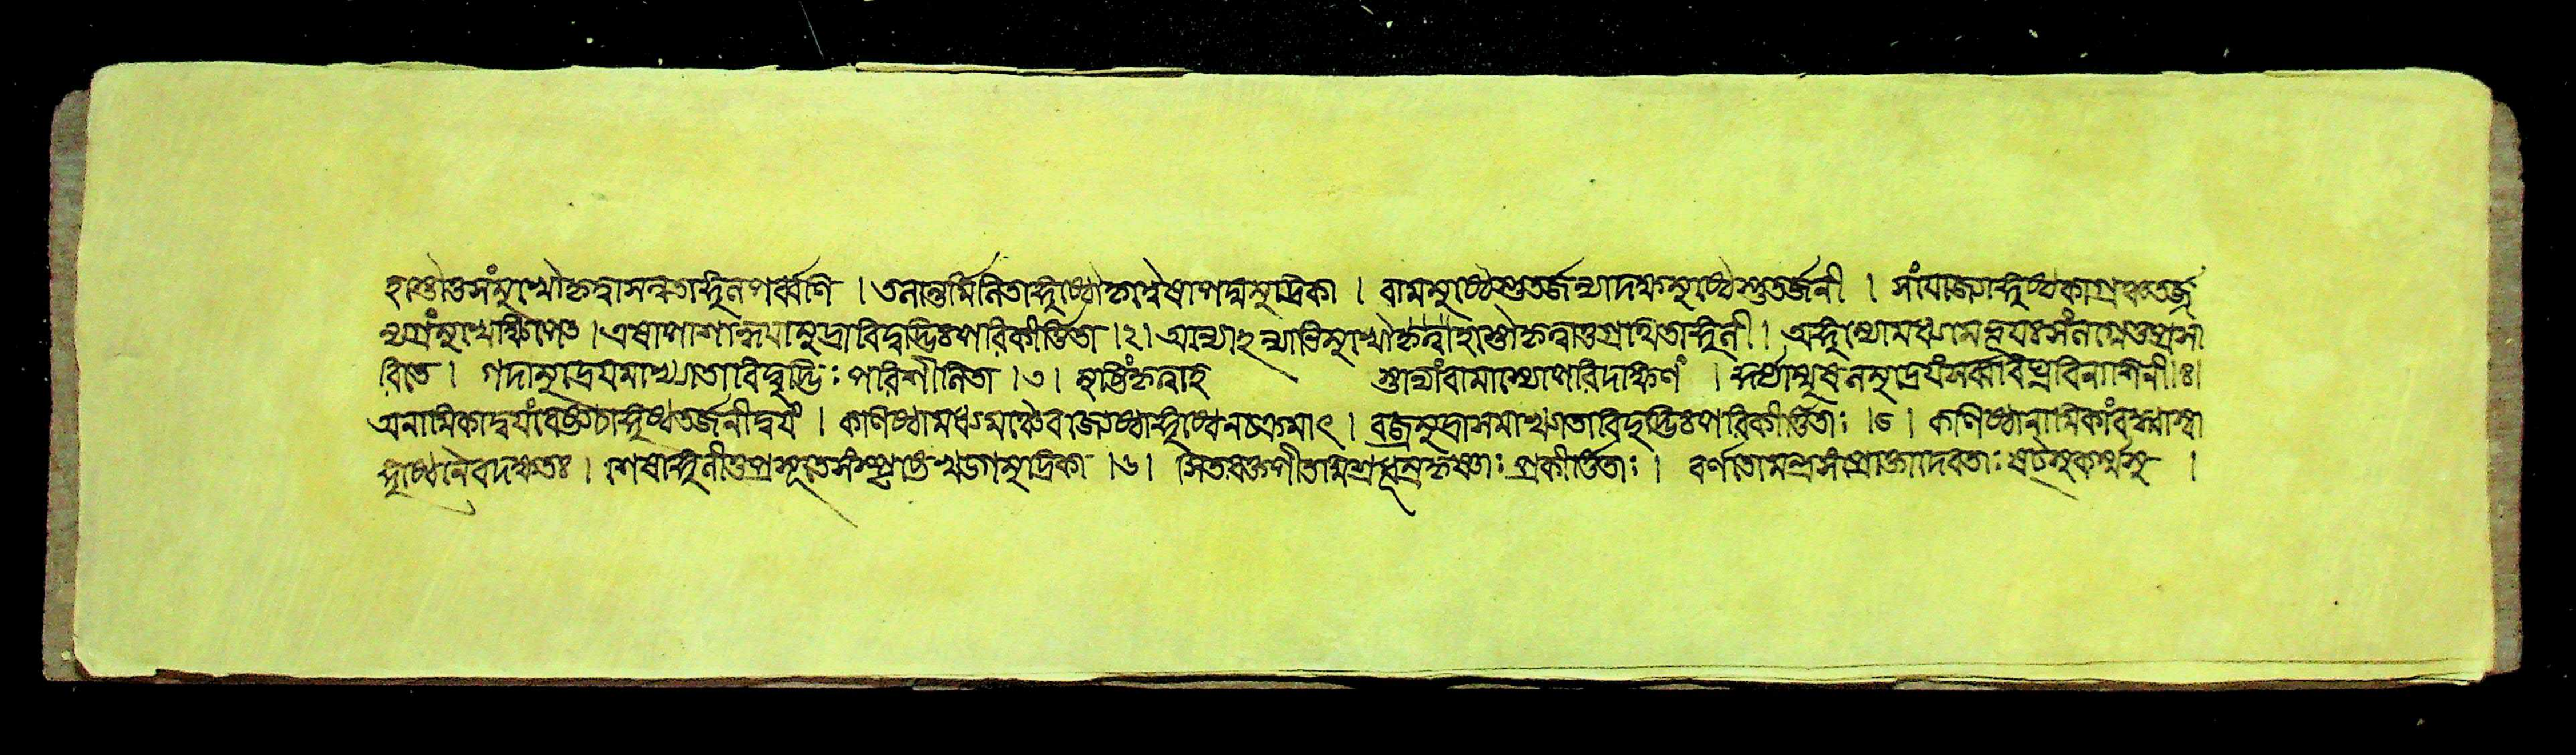 হস্তৌতুসংমুখৌকৃত্বাসন্নতাঙ্গুলপর্ব্বণি । তলান্তর্মিলিতাঙ্গুষ্ঠৌকৃত্বৈষাপদ্মমুদ্রিকা । বামমুষ্টেস্তুতর্জন্যাদক্ষমুষ্টেস্তুতর্জনী । সংযোজ্যাঙ্গুষ্ঠকাগ্রেণতর্জ
ন্যগ্রংমুখেক্ষিপেৎ । এষাপাশাহ্বয়ামুদ্রাবিদ্বদ্ভিঃপরিকীর্ত্তিতা । ২ । অন্যোহন্যাভিমুখৌকৃত্বাহস্তৌকৃত্বাতুগ্রথিতাঙ্গুলী । অঙ্গুল্যোমধ্যমেভূয়ঃসংলগ্নেতুপ্রসা
রিতে । গদামুদ্রেয়মাখ্যাতাবিদ্বদ্ভিঃ পরিশীলিতা । ৩ । মুষ্টিংকৃত্বাহ স্তাভ্যাংবামস্যোপরিদক্ষিণং । মুষলমুদ্রেয়ংসর্ব্ববিঘ্নবিনাশিনী । ৪ ।
অনামিকাদ্বয়ং তর্জনীদ্বয়ং । কনিষ্ঠামধ্যমাঞ্চৈবজ্যেষ্ঠাঙ্গুষ্ঠেনচক্রমাৎ । বজ্রমুদ্রাসমাখ্যাতাবিদ্বদ্ভিঃপরিকীর্ত্তিতাঃ । ৫ । কনিষ্ঠানামিকাংবদ্ধ্বাস্বা
ঙ্গুষ্ঠেনৈবদক্ষতঃ । শেষাঙ্গুলীতুপ্রসৃতেসংসৃষ্টেখড়্গমুদ্রিকা । ৬ । সিতরক্তপীতমিশ্রধূম্রকৃষ্ণাঃ প্রকীর্ত্তিতাঃ । বর্ণতোমন্ত্রসংপ্রোক্তাদেবতাঃ ষট্সুকর্ম্মসু ।